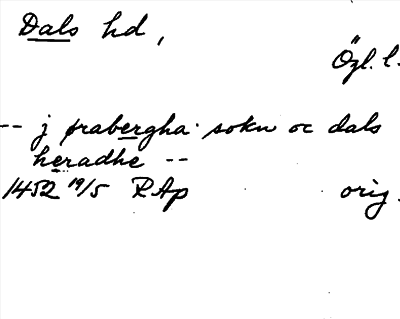 Dals hd,
Ögl. l.
-- j frabergha sokn oc dals
heradhe --
1452 19/5 RAp orig.